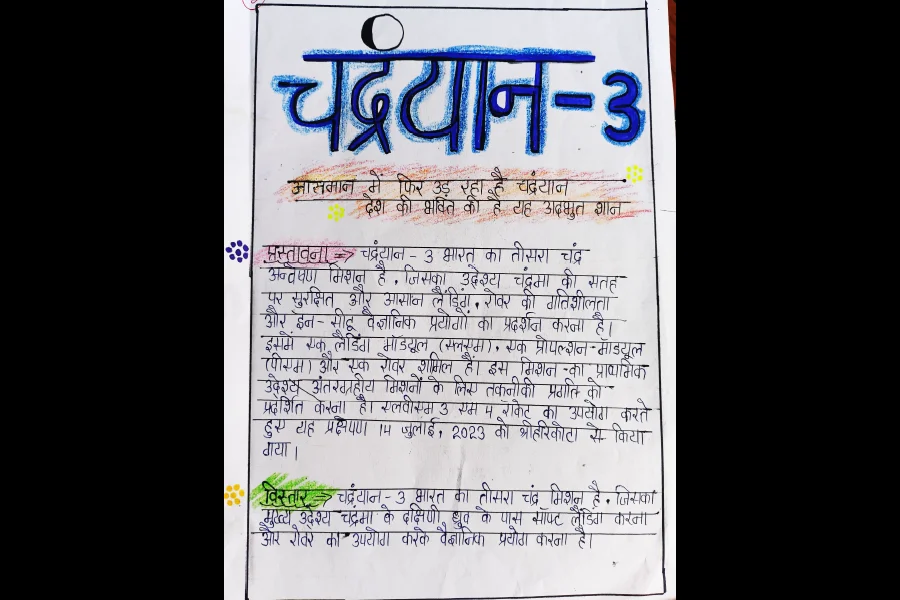 चंद्रयान-3
आसमान में फिर उड़ रहा है चंद्रयान
देश की भक्ति की है यह अदभुत शान
प्रस्तावना => चद्रंयान - 3 भारत का तीसरा चंद्र
अन्वेषण मिशन है, जिसका उद्देश्य चद्रंमा की सतह
पर सुरक्षित और आसान लैंडिंग, रोवर की गतिशीलता
और इन - सीटू वैज्ञानिक प्रयोगों का प्रदर्शन करना है।
इसमें एक लैंडिंग मॉड्यूल (एलएम), एक प्रोपल्शन-मॉड्यूल
(पीएम) और एक रोवर शामिल है। इस मिशन का प्राथमिक
उद्देश्य अंतरग्रहीय मिशनों के लिए तकनीकी प्रगति को
प्रदर्शित करना है। एलवीएम 3 एम 4 रॉकेट का उपयोग करते
हुए यह प्रक्षेपण 14 जुलाई, 2023 को श्रीहरिकोटा से किया
गया।
विस्तार => चद्रंयान - 3 भारत का तीसरा चंद्र मिशन है, जिसका
मुख्य उद्देश्य चद्रंमा के दक्षिणी ध्रुव के पास सॉफ्ट लैंडिंग करना
और रोवर का उपयोग करके वैज्ञानिक प्रयोग करना है।